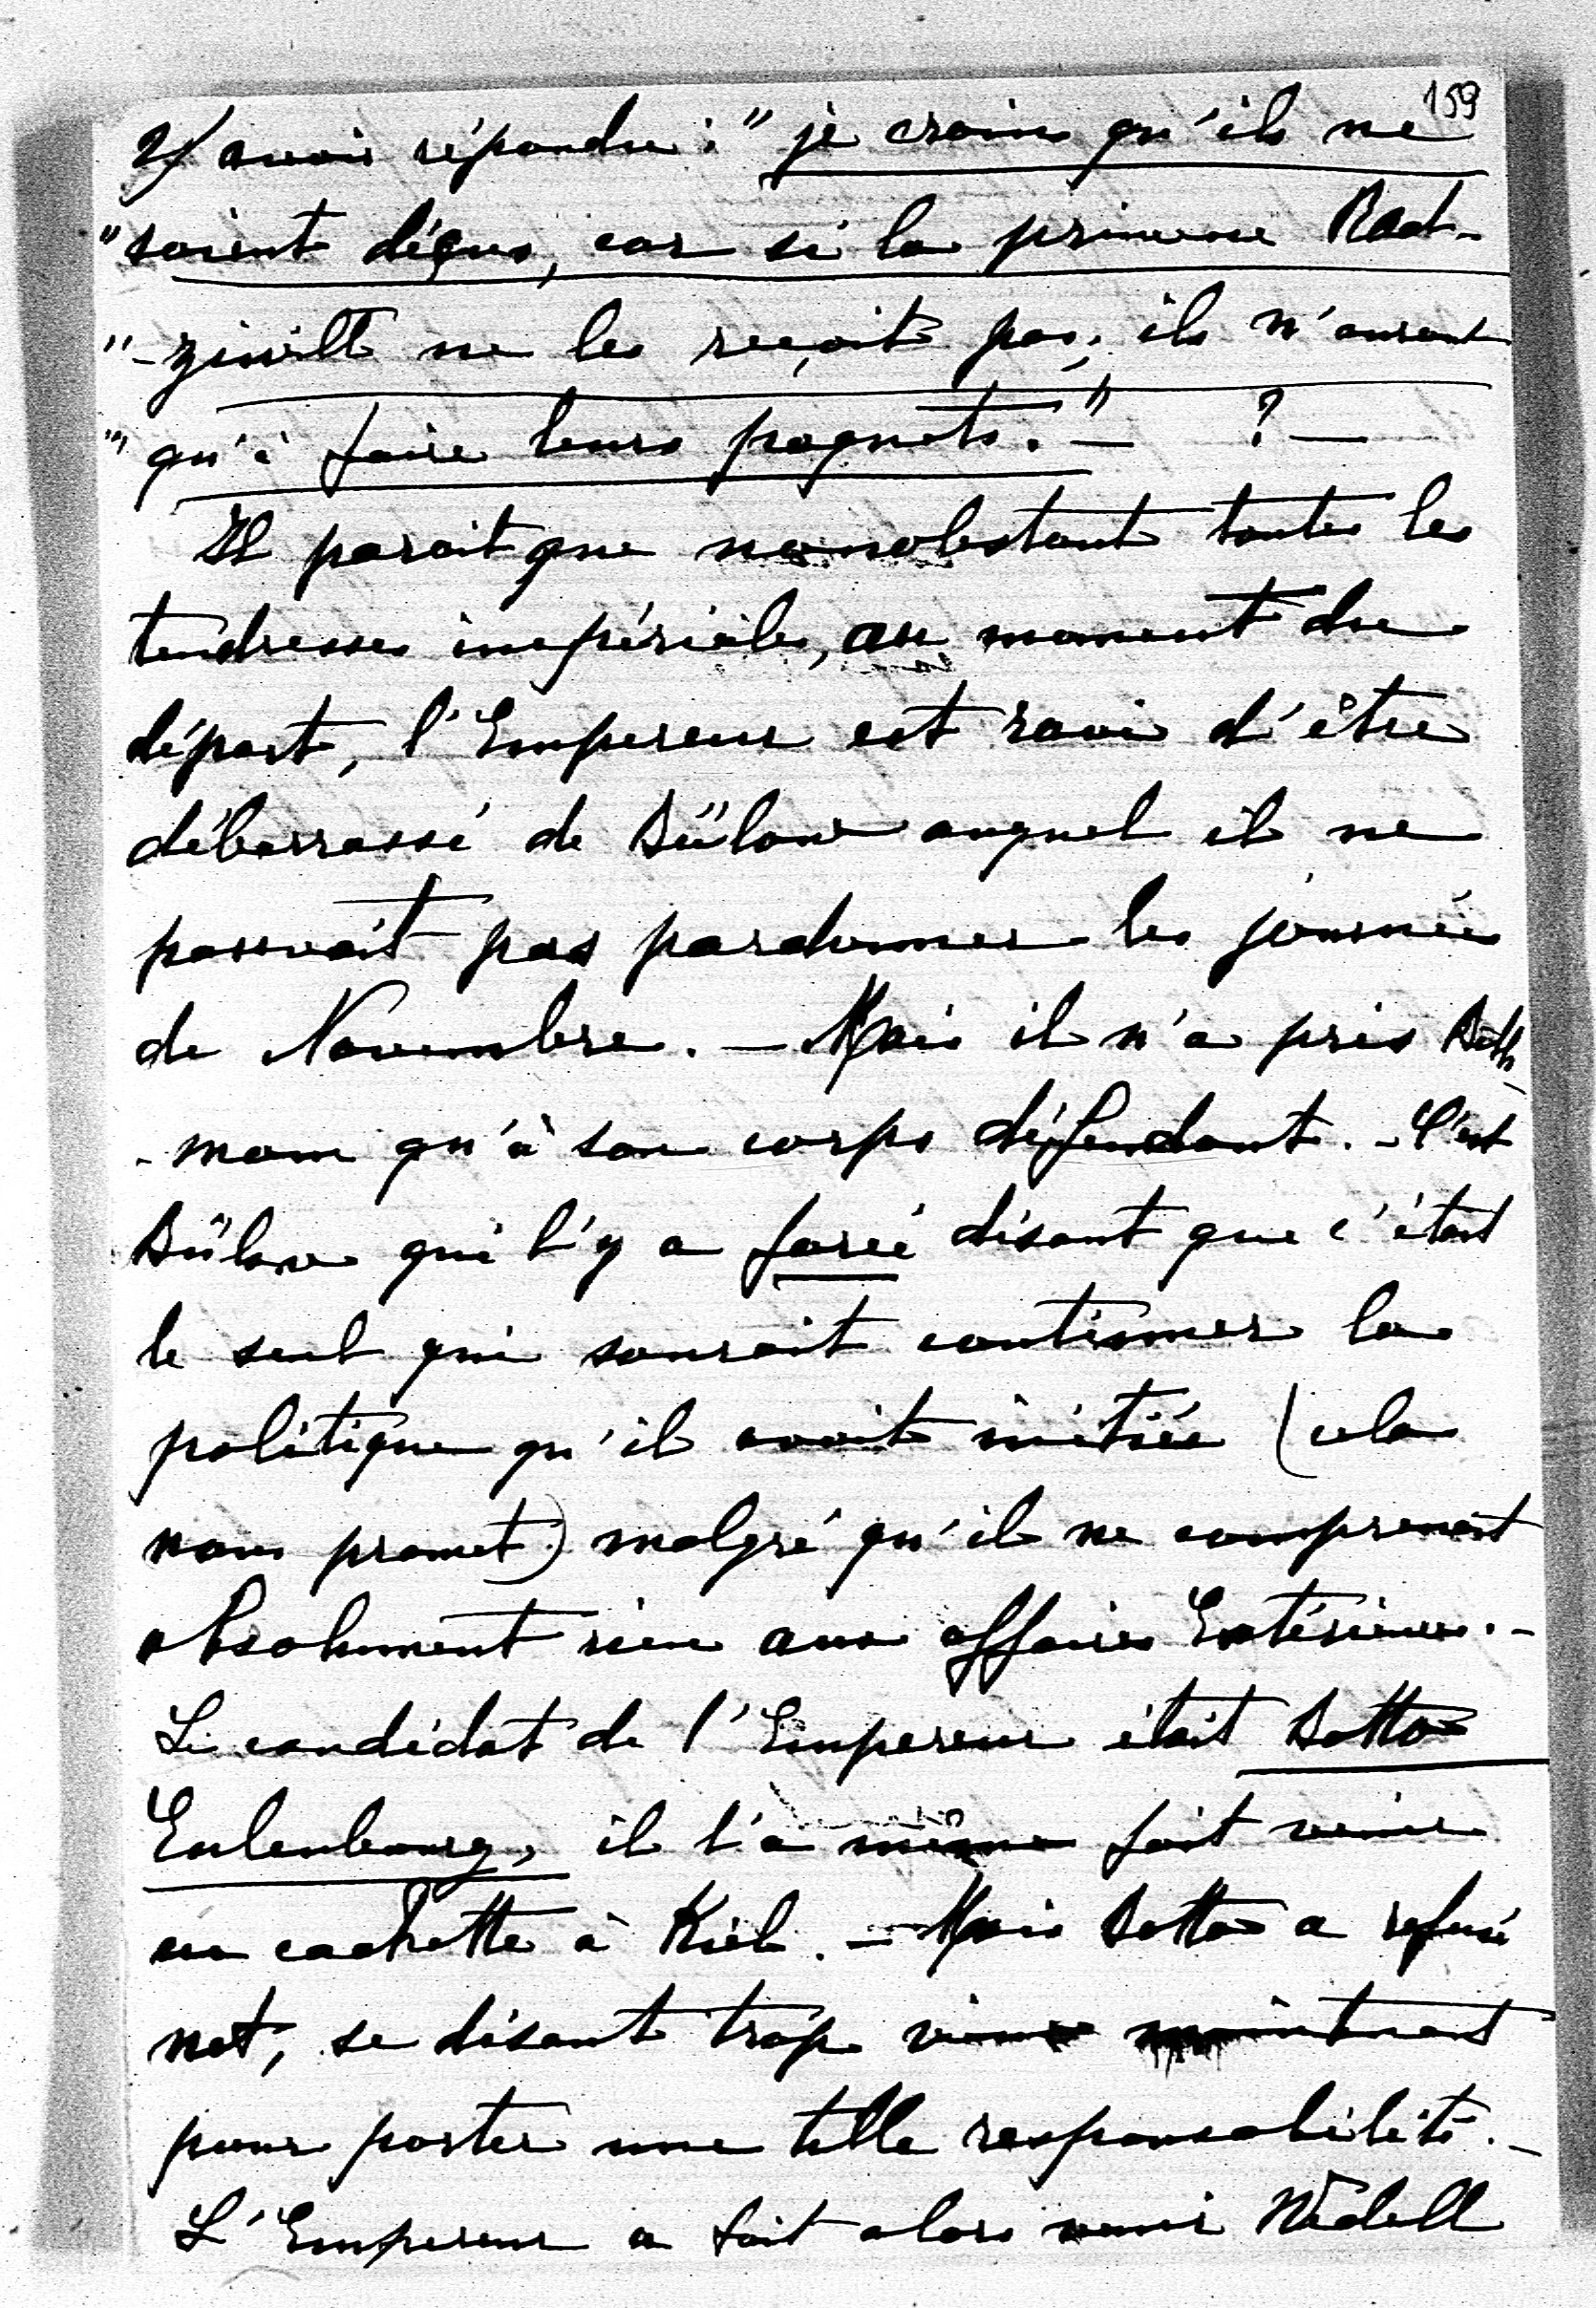 159
2/ avoir répondu: "je crains qu'ils ne
"soient déçus, car si la princesse Rad-
"-ziwill ne les reçoit pas, ils n'auront
"qu'à faire leurs paquets."– ? –
Il parait que nonobstant toutes les
tendresses impériales, au moment du
départ, l'Empereur est ravi d'être
débarrassé de Bülow auquel il ne
pouvait pas pardonner les journées
de Novembre. – Mais il n'a pris Beth-
-mann qu'à son corps défendant. – C'est
Bülow qui l'y a forcé disant que c'était
le seul qui saurait continuer la
politique qu'il avait initiée (cela
nous promet) malgré qu'il ne comprenait
absolument rien aux affaires Extérieures. –
Le candidat de l'Empereur était Botto
Eulenbourg, il l'a même fait venir
en cachette à Kiel. – Mais Botto a refusé
net, se disant trop vieux maintenant
pour porter une telle responsabilité. –
L'Empereur a fait alors venir Wedell